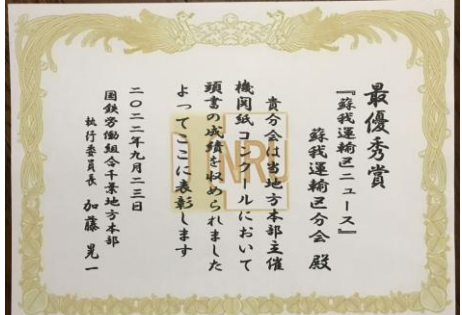 最優秀賞
『蘇我運輸区ニュース』
蘇我運輸区分会 殿
貴分会は当地方本部主催
機関紙コンクールにおいて
頭書の成績を収められました
よってここに表彰します
二〇二二年九月二三日
国鉄労働組合千葉地方本部
執行委員長 加藤 晃一
NRU